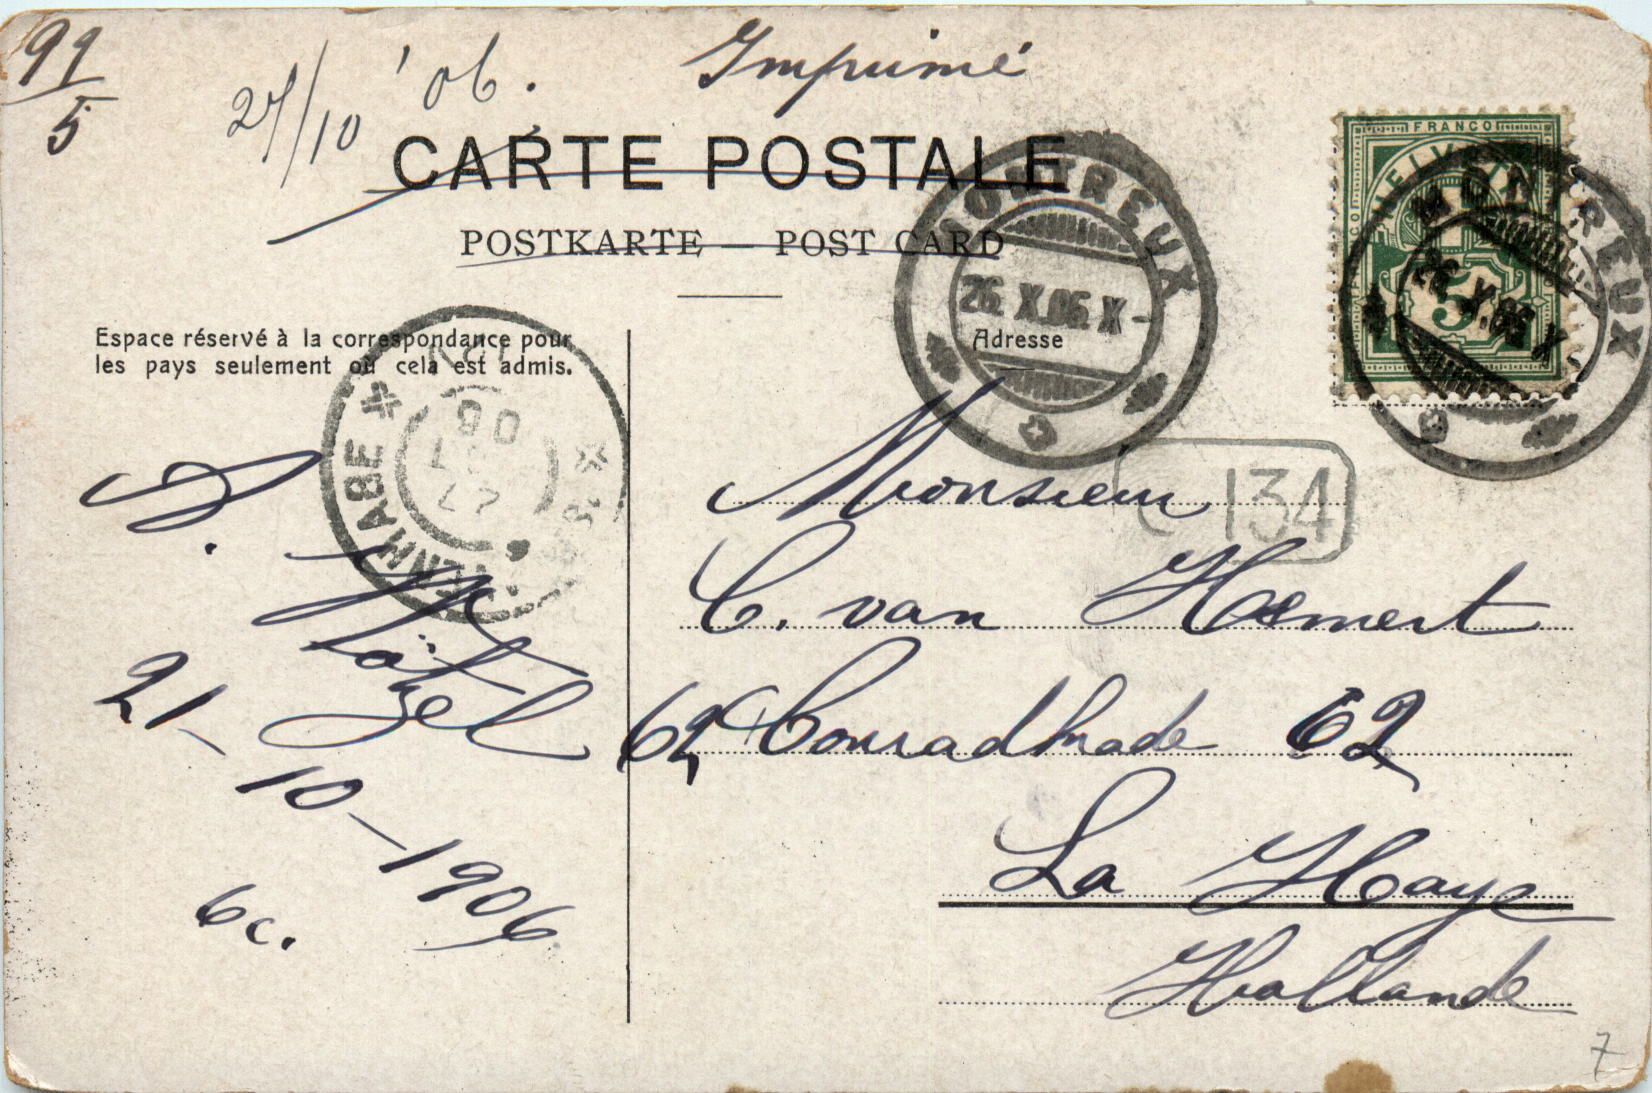 99
5
27/10 '06.
Imprimé
CARTE POSTALE
POSTKARTE — POST CARD
FRANCO
HELVETIA
5
MONTREUX
26. X.06. X-
MONTREUX
26. X.06. X
Espace réservé à la correspondance pour
les pays seulement où cela est admis.
Adresse
134
Monsieur
C. van Hemert
62 Conradkade 62
La Haye
Hollande
21-10-1906
6c.
7